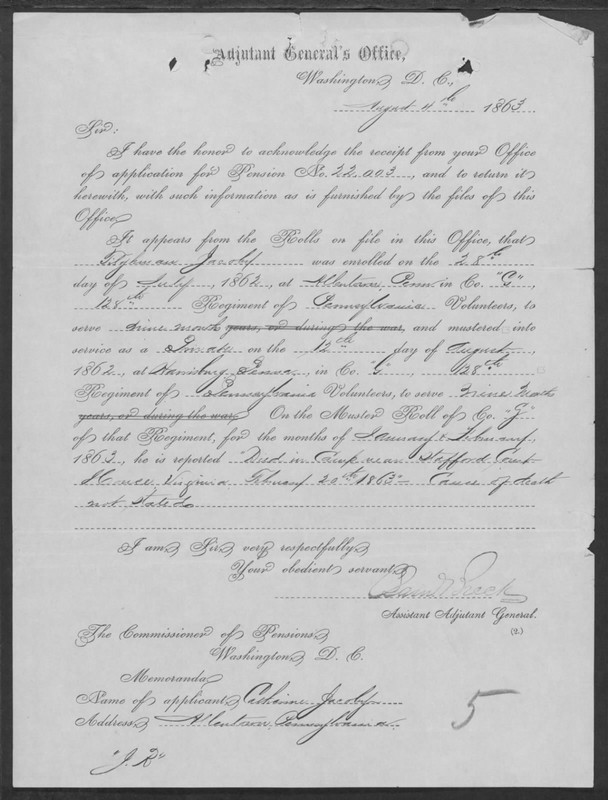 Adjutant General's Office,
Washington, D. C.,
August 4th 1863
Sir:
I have the honor to acknowledge the receipt from your Office
of application for Pension No. 22.003, and to return it
herewith, with such information as is furnished by the files of this
Office.
It appears from the Rolls on file in this Office, that
Tilghman Jacoby was enrolled on the 28th
day of July, 1862, at Allentown Penn in Co. "G",
128th Regiment of Pennsylvania Volunteers, to
serve nine months years, or during the war, and mustered into
service as a Private on the 12th day of August,
1862, at Harrisburg Penna, in Co. "G", 128th
Regiment of Pennsylvania Volunteers, to serve nine months
years, or during the war. On the Muster Roll of Co. "G"
of that Regiment, for the months of January & February,
1863, he is reported "Died in Camp near Stafford Court
House Virginia February 20th 1863" Cause of death
not stated.
I am, Sir, very respectfully,
Your obedient servant,
Saml Breck
Assistant Adjutant General.
(2.)
The Commissioner of Pensions,
Washington, D. C.
Memoranda
Name of applicant, Catharine Jacoby
Address, Allentown Pennsylvania.
5
"J. B"